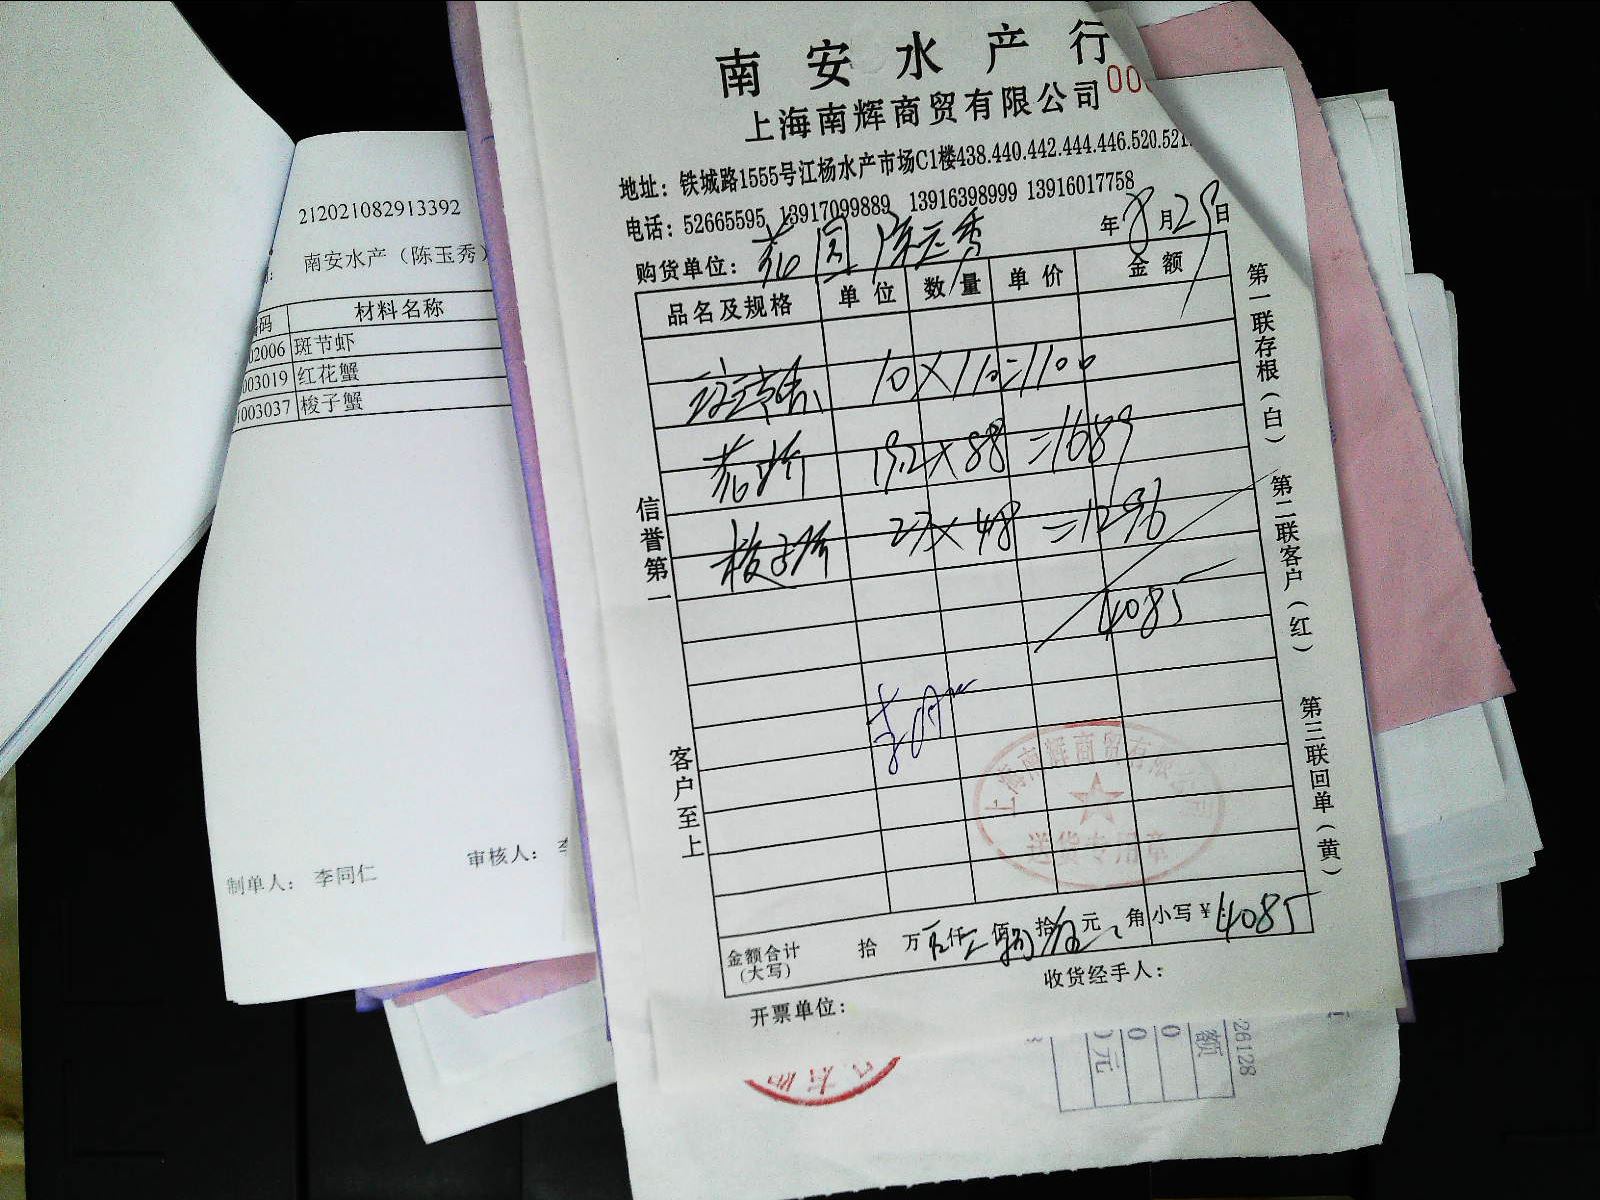 南安水产行
上海南辉商贸有限公司 00
地址：铁城路1555号江杨水产市场C1楼438.440.442.444.446.520.521.
电话：52665595 13917099889 13916398999 13916017758
年8月29日
购货单位：花园陈玉秀
品名及规格 单位 数量 单价 金额
斑节虾 10×110=1100
花蟹 19.2×88=1689
梭子蟹 27×48=1296
4085
金额合计（大写） 拾 万 仟 佰 拾 元 角 小写￥：4085
开票单位：
收货经手人：
信誉第一
客户至上
第一联存根（白）
第二联客户（红）
第三联回单（黄）
上海南辉商贸有限公司
送货专用章
212021082913392
南安水产（陈玉秀）
码 材料名称
02006 斑节虾
003019 红花蟹
1003037 梭子蟹
制单人：李同仁
审核人：
26128
额
0
0
0元